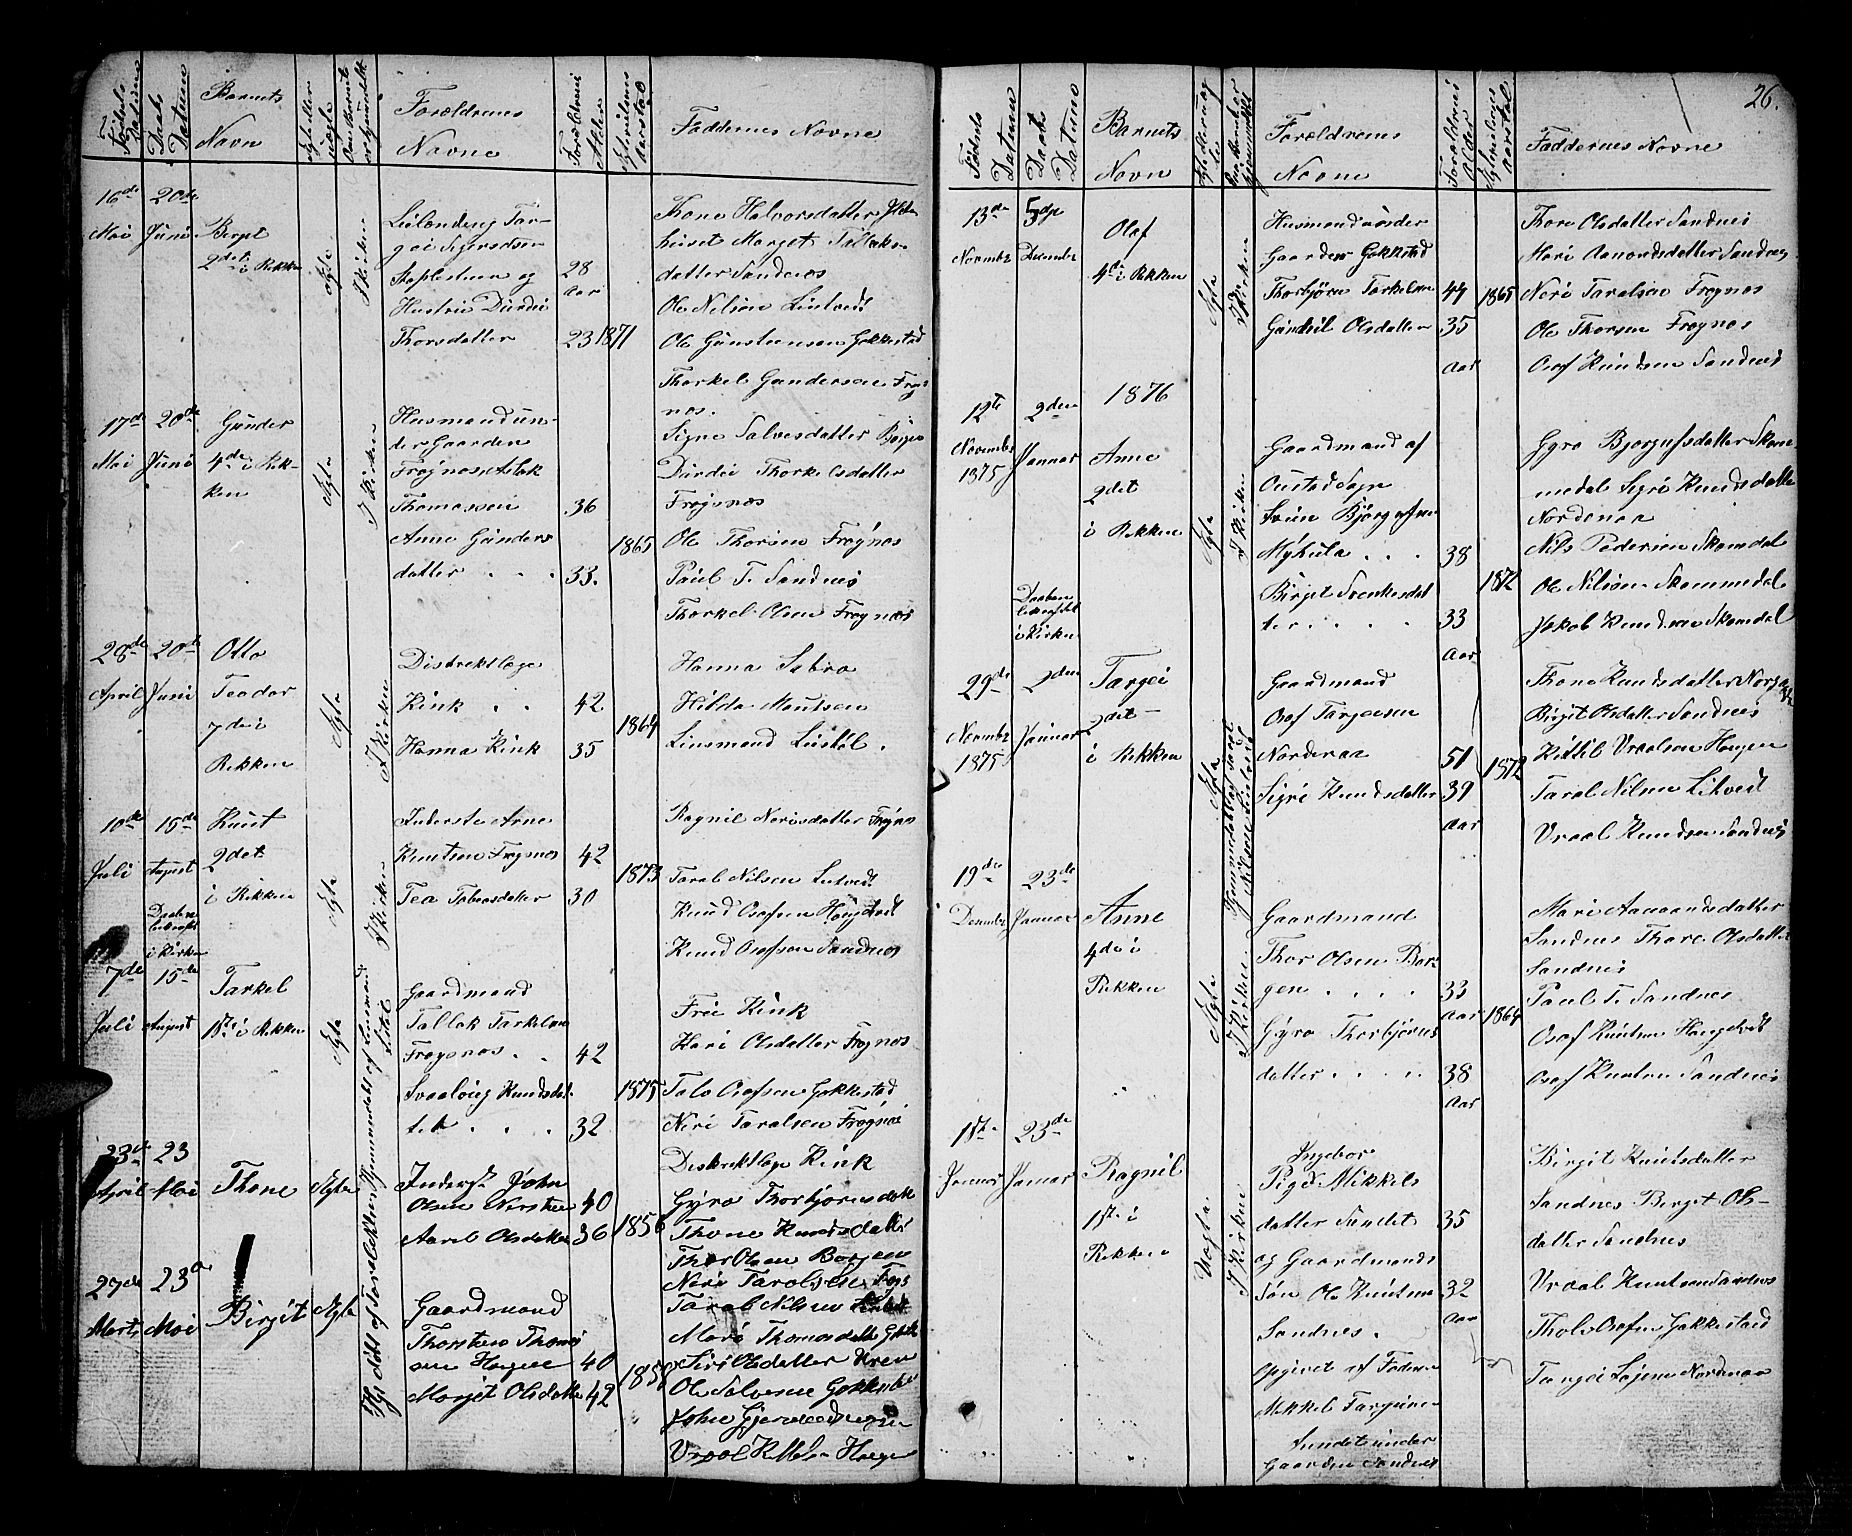 Fødsels Datum
Daabs Datum
Barnets Navn
Ægte eller uægte
Om Barnet er hjemmedøbt
Forældrenes Navne
Forældrenes Alder
Ægtevielsens Aarstal
Faddernes Navne
16de Mai
20de Juni
Birgit
2det i Rekken
Ægte
I Kirken
Leilending Tar-
gei Sigurdsen
Staplesteen og
Hustrue Durdei
Thorsdatter
28 aar
23
1871
Thone Halvorsdatter
huset Marget Tallaks-
datter Sandnæs
Ole Nilsen Lintvedt
Ole Gunstensen Gokkestad
Thorkel Gundersen Frøgs
næs.
17de Mai
20de Juni
Gunder
4de i Rek-
ken
Ægte
I Kirken
Husmand un-
der Gaarden
Frøgnæs Aslak
Thomassen
Anne Gunders
datter . . .
36
33.
1865
Signe Salvesdatter Borgen
Durdei Thorkelsdatter
Frøgnæs
Ole Thorsen Frøgnæs
Paul T. Sandnes
Thorkel Olsen Frøgnæs
28de April
20de Juni
Otto
Teodor
7de i
Rekken
Ægte
I Kirken
Distrektlæge
Kink . .
Hanna Kink
42
35
1864
Hanna Sebro
Hilda Moutsen
Linsmand Listøl .
10de Juli
15de August
Knut
2det
i Rekken
Ægte
I Kirken
Inderste Arne
Knutsen Frøgnæs
Tea Tobiasdatter
42
30
1873
Ragnil Nerisdatter Frøgnæs
Taral Nilsen Lintvedt
Knud Osofsen Haugtvedt
Knud Osofsen Sandnæs
Daaben
bekræftet
i Kirken
7de Juli
15de August
Tarkel
1ste i Rekken
Ægte
Hjemmedøbt af Linsmand
Listøl
Gaardmand
Tallak Tarkelsen
Frøgsnæs . .
Svaalaug Knudsdat-
ter . . .
42
32
1875
Frue Kink
Hæri Olsdatter Frøgnæs
Talo Osofsen Gokkestad
Neri Taralsen Frøgnæs
Distrektlæge Kink
23de April
23 Mai
Thone
Ægte
Inderst John
Olsen Nersteen
Aasel Olsdatter
40
36
1856
Gyro Thorbjørnsdatter
Thone Knudsdatter
Thor Olsen Borgen
Neri Taralsen Frøgs
Taral Nilsen
27de Marts
23de Mai
Birgit
Ægte
Gaardmand
Thorsten Thoms
sen Haugen
Margit Olsdatter
40
42
1858
Mari Thomasdatter
Siri Olsdatter Uren
Ole Salvesen Gokkestad
John Gjermundsen
Vraal Kittelsen Haugen
26.
Fødsels Datum
Daabs Datum
Barnets Navn
Ægte eller uægte
Forældrenes Navne
Forældrenes Alder
Ægtevielsens aarstal
Faddernes Navne
13de November
5te December
Olaf
4de i Rekken
Ægte
I Kirken
Husmand under
Gaarden Gokkestad
Thorbjørn Tarkelsen
Gunhil Olsdatter
44
35
aar
1865
Thone Olsdatter Sandnes
Mari Aanondsdatter Sandnes
Neri Taralsen Frøgnæs
Ole Thorsen Frøgnæs
Osof Knudsen Sandnes
1876
12te November 1875
2den Januar
Anne
2det
i Rekken
Ægte
I Kirken
Gaardmand af
Svein Bjørgufsen
Mykula . . .
Birgit Svenkesdat
ter . . . .
38
33
aar
1872
Gyro Bjørgufsdatter Skom
medal Sigri Knudsdatter
Nordenaa
Nils Pedersen Skomdal
Ole Nilsen Skommedal
Jakob Knudsen Skomdal
Daaben
bekræftet
i Kirken
29de November 1875
2den Januar
Targei
2det
i Rekken
Ægte
Hjemmedøbt af Taral
Nilsen Lintvedt
Gaardmand
Osof Targeesen
Nordenaa
Sigri Knudsdatter
51
39
aar
1872
Thone Knudsdatter
Birgit Olsdatter Sandnes
Kittil Vraalsen Haugen
Taral Nilsen Litvedt
Vraal Knudsen Sandnes
19de December
23de Januar
Anne
4de i
Rekken
Ægte
I Kirken
Gaardmand
Thor Olsen Bor-
gen . . . .
Gyro Thorbjørns
datter . . . .
33
aar
38
aar
1864
Mari Aanaandsdatter
Sandnes Thore Olsdatter
Sandnes
Paul T. Sandnes
Osof Knutsen Haugtvedt
Osof Knutsen Sandnes
1ste Januar
23de Januar
Ragnil
1ste i
Rekken
Uægte
I Kirken
Ingebor
Pige Mikkels
datter Sundet
og Gaardmands
Søn Ole Knutsen
Sandnes .
opgivet af Faderen
Mikkel Targusen
Sundet under
Gaarden Sandnes
35
32
aar
Birgit Knutsdatter
Sandnes Birget Ols-
datter Sandnes
Vraal Knutsen Sandnes
Thole Osofsen Gokkestad
Targei Nordenaa